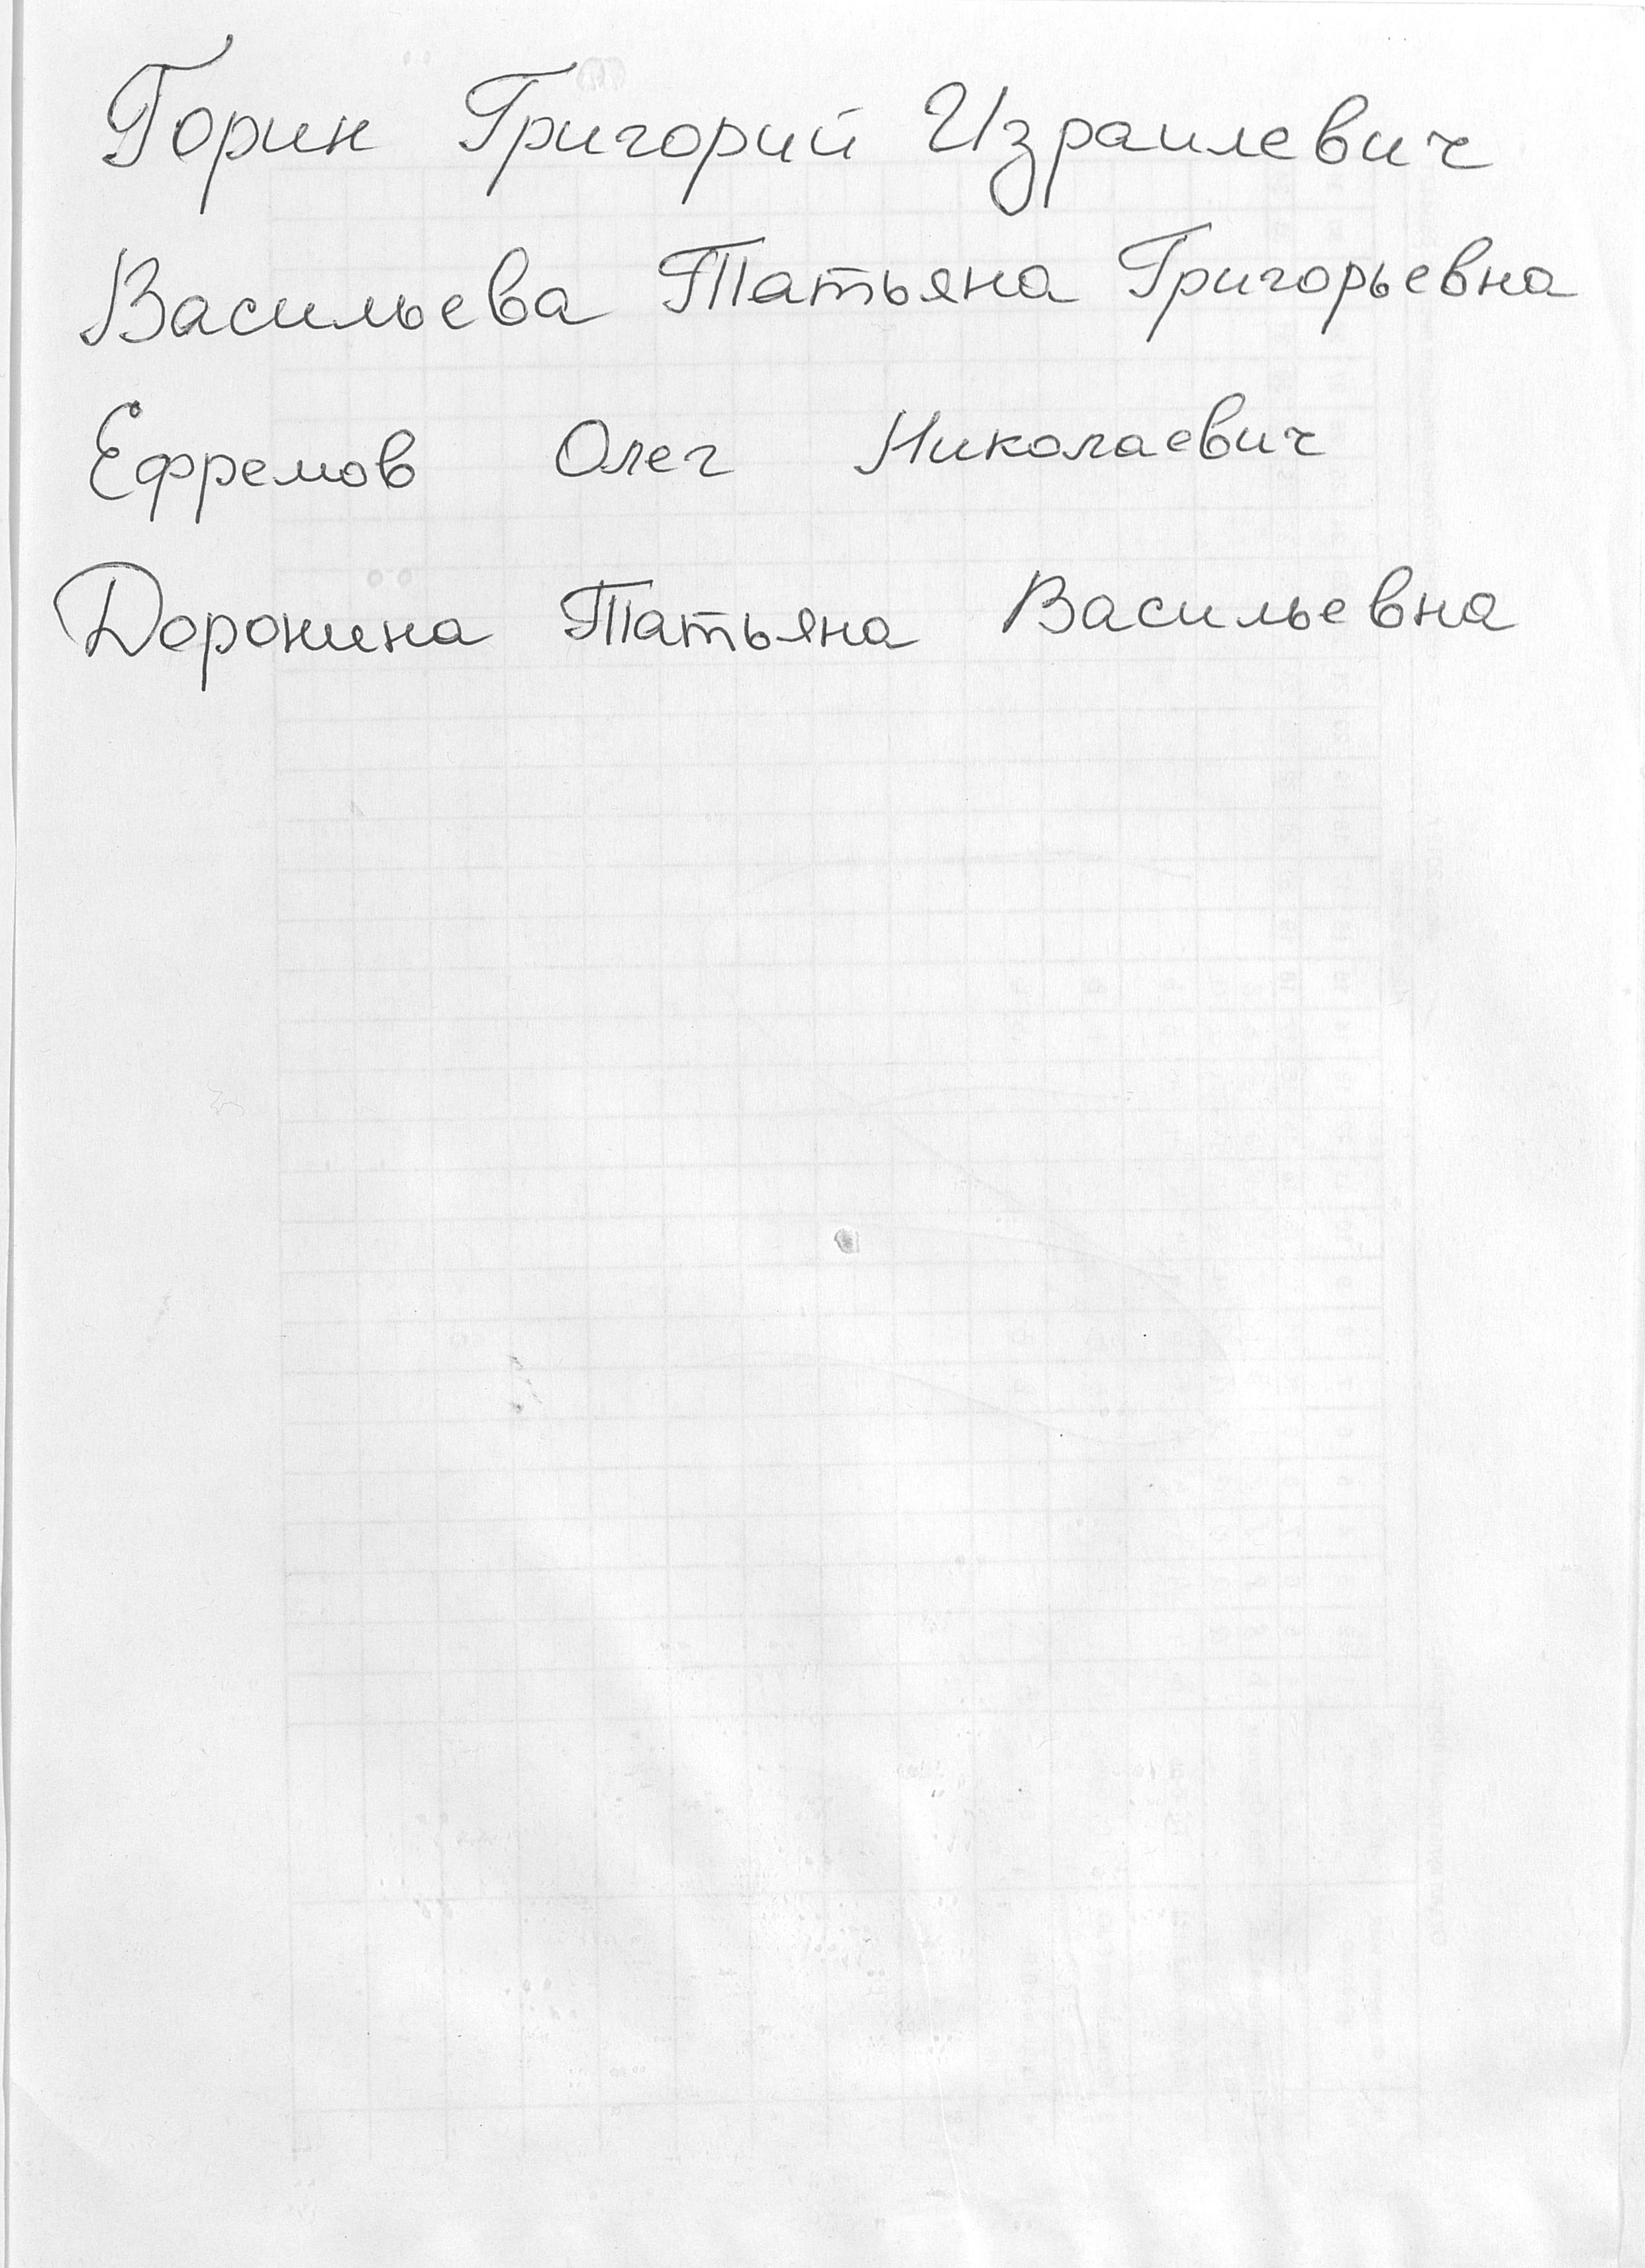 Горин Григорий Израилевич
Васильева Татьяна Григорьевна
Ефремов Олег Николаевич
Доронина Татьяна Васильевна